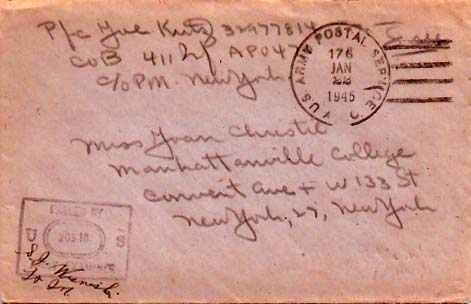 Pfc Joe Kurtz 32977814
Co B 411 Inf. APO 47
C/O PM. New York
Free
U.S. ARMY POSTAL SERVICE
176
JAN
22
1945
Miss Joan Christie
Manhattanville College
Convent Ave + W 133 St
New York, 27, New York
PASSED BY
U S
ARMY EXAMINER